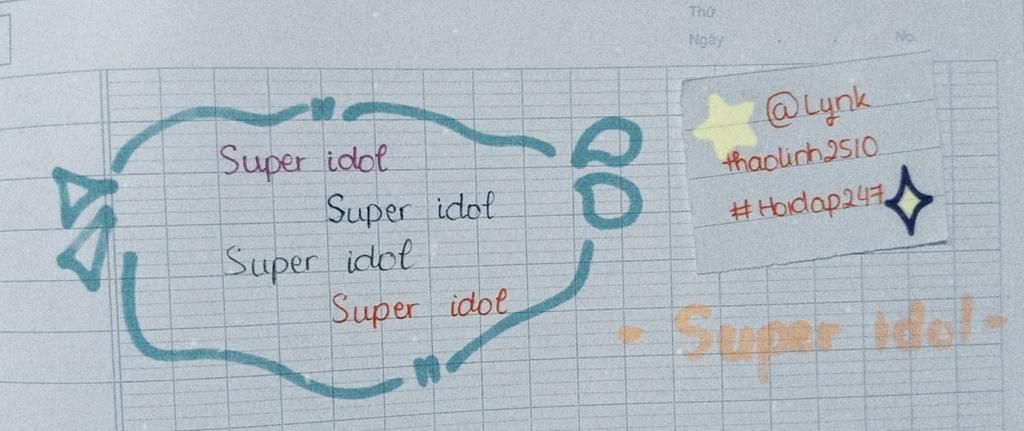 Thứ
Ngày
No.
Super idol
Super idol
Super idol
Super idol
@Lynk
thaolinh2510
#Hoidap247
- Super idol -